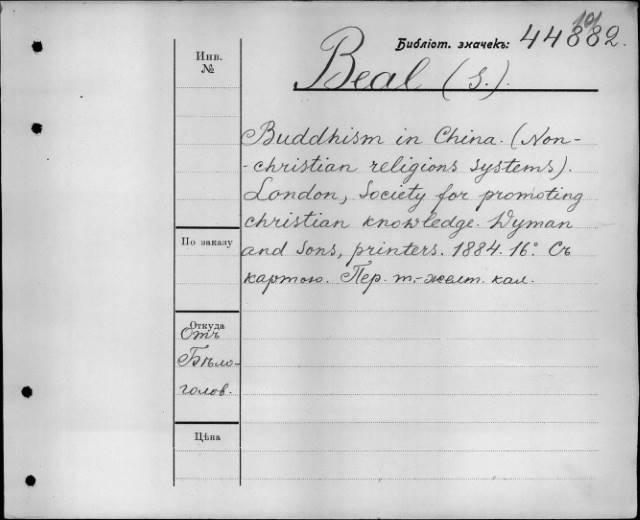 101
Библіот. значекъ: 44882.
Инв. №
Beal (S.).
Buddhism in China. (Non-
-christian religions systems).
London, Society for promoting
christian knowledge. Wyman
and Sons, printers. 1884. 16°. Съ
картою. Пер. т.-желт. кал.
По заказу
Откуда
Отъ
Бѣло-
голов.
Цѣна